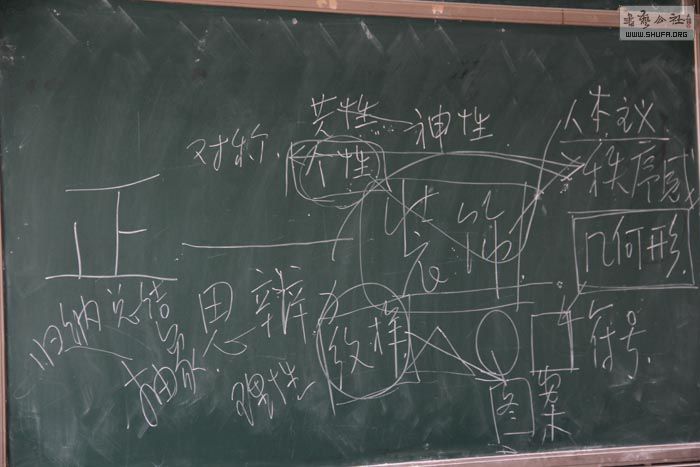 書艺公社
WWW.SHUFA.ORG
共性 神性 人本主议
对称 个性 秩序感
正 装饰 几何形
归纳总结 思辨 纹样 符号
抽象 理性 图案